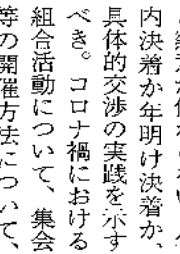 内決着か年明け決着か、
具体的交渉の実践を示す
べき。コロナ禍における
組合活動について、集会
等の開催方法について、